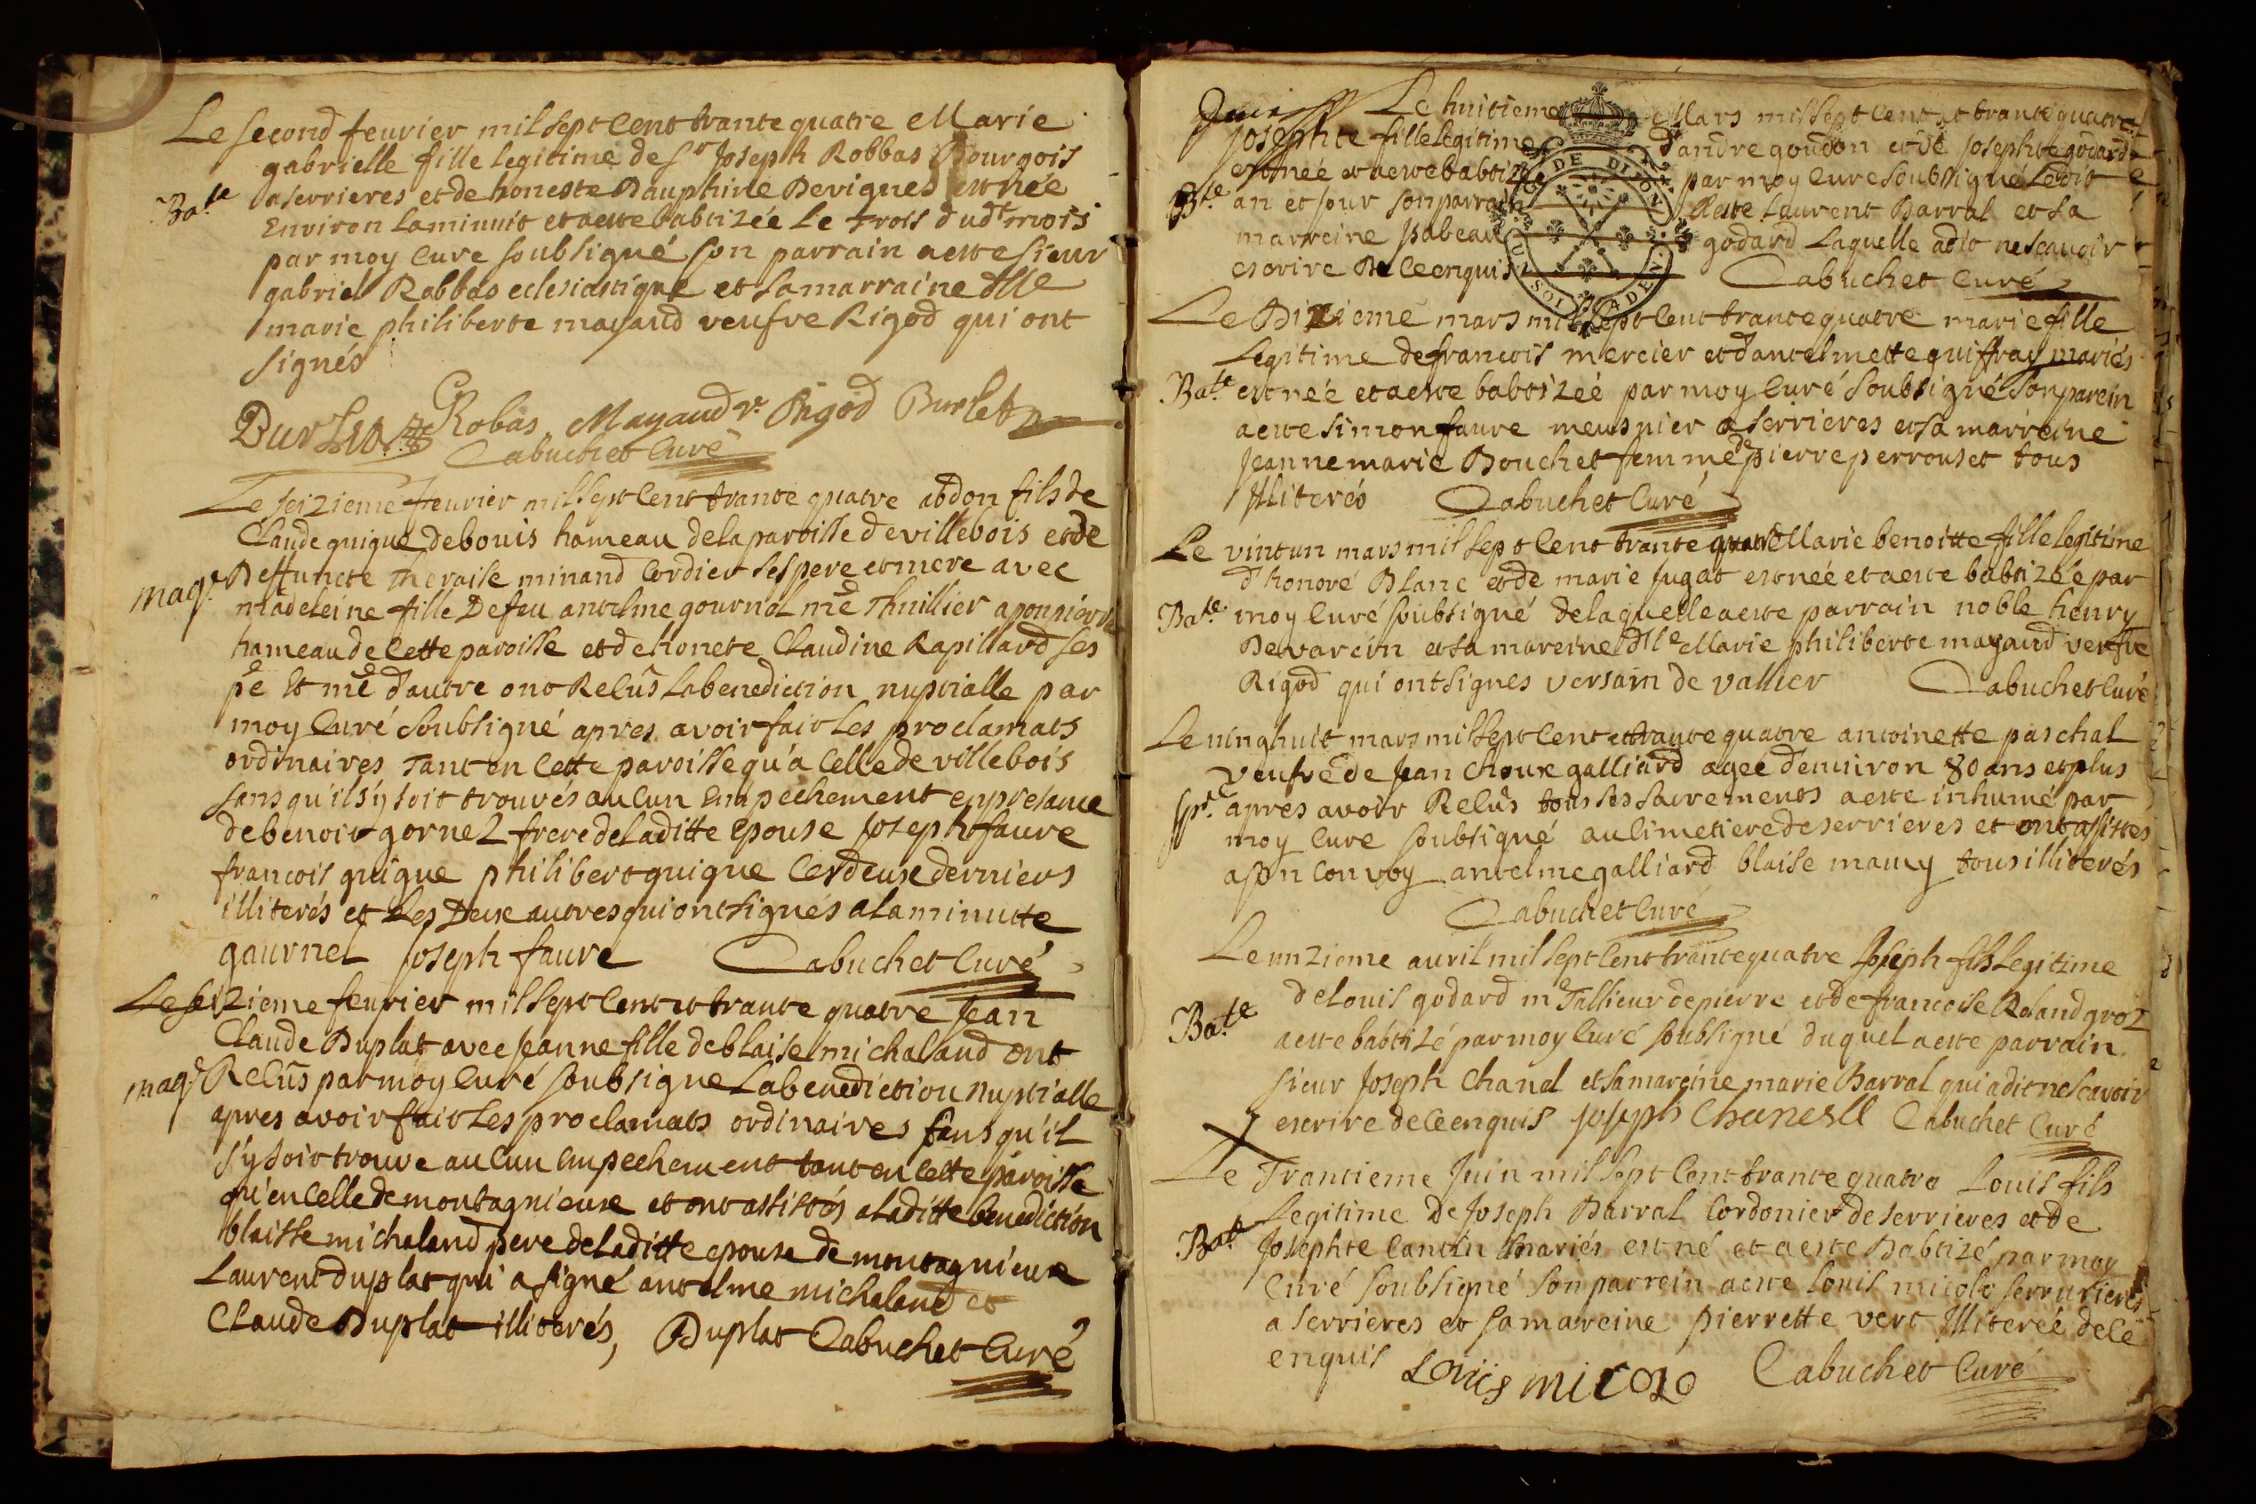 Le second feurier mil sept cent trante quatre Marie
gabrielle fille legitime de Sr Joseph Robbas Bourgois
a serrieres et de honeste Dauphine Devignes est née
Bate
Environ la minuit et a este babtizée Le trois dudt mois
par moy Curé soubsigné son parrain a este sieur
gabriel Robbas eclesiastique et sa marraine dlle
marie philiberte mayaud veufve Rigod qui ont
signés
Robas Mayaud ve Rigod Burlet
Cabuchet Curé
Le seizieme feurier mil sept cent trante quatre abdon fils de
Claude guigue de bouis hameau de la paroisse de villebois et de
mage
Deffuncte theraise minand Cordier ses pere et mere avec
madeleine fille De feu antelme gournol me Thuillier a
hameau de cette paroisse et de honete Claudine Rapillard ses
pe et me d'autre ont Relûs La benediction nuptialle par
moy Curé soubsigné apres avoir fait Les proclamats
ordinaires Tant en Cette paroisse qu'a Celle de villebois
sans qu'il s'y soit trouvés aucun empechement en presance
de benoit gornez frere de la ditte epouse Joseph faure
francois guigue philibert guigue Ces deux derniers
illiterés et Les Deux autres qui ont signés a la minutte
gaurnel Joseph faure Cabuchet Curé
Le seizieme feurier mil sept Cent et trante quatre Jean
Claude Duplat avec Jeanne fille de blaise michaland ont
mage
Relûs par moy Curé soubsigné La benediction nuptialle
apres avoir fait Les proclamats ordinaires sans qu'il
s'y soit trouvé aucun empechement tant en Cette paroisse
qu'en Celle de montagnieux et ont assistés a La ditte benediction
blaisse michaland pere de la ditte epouse de montagnieux
Laurent duplat qui a signé antelme michaland et
Claude Duplat illiterés, Duplat Cabuchet Curé
Le huitieme Mars mil sept Cent et trante quatre
Josephte fille legitime d'andre goudon et de Josephte godard
est née et a este babtizée par moy Curé soubsigné Ledit
Bte
an et Jour son parrain a este Laurent Barral et sa
marreine Jsabeau godard Laquelle a dit ne scavoir
escrire De Ce enquis Cabuchet Curé
Le Dixieme mars mil sept Cent trante quatre marie fille
Legitime de francois mercier et d'antelmette guiffray mariés
Bate
est née et a este babtizée par moy Curé soubsigné son parein
a este simon faure meusnier a serrieres et sa marreine
Jeanne marie Bouchet femme de pierre perrouset tous
Jlliterés Cabuchet Curé
Le vint un mars mil sept Cent trante quatre Marie benoitte fille Legitime
d'honoré Blanc et de marie Jugat est née et a este babtizée par
Bate
moy Curé soubsigné de laquelle a este parrain noble henry
De varein et sa mareine Dlle Marie philiberte mayaud veufve
Rigod qui ont signés versain de vallier Cabuchet Curé
Le vinghuit mars mil sept Cent et trante quatre antoinette paschal
veufve de Jean Choux galliard agée d'environ 80 ans et plus
spre
apres avoir Relûs tous ses sacrements a este inhumé par
moy Curé soubsigné au Cimetiere de serrieres et ont assistes
a son Convoy antelme galliard blaise mamy tous illiterés
Cabuchet Curé
Le unzieme avril mil sept Cent trante quatre Joseph fils Legitime
de Louis godard me Tallieur de pierre et de francoise Roland groz
Bate
a este babtizé par moy Curé soubsigné duquel a este parrain
sieur Joseph Chanel et sa mareine marie Barral qui a dit ne scavoir
escrire de Ce enquis Joseph Chanell Cabuchet Curé
Le Trantieme Juin mil sept Cent trante quatre Louis fils
Legitime De Joseph Barral Cordonier de serrieres et de
Bate
Josephte Cantin mariés est né et a este Babtizé par moy
Curé soubsigné son parrein a este Louis micolo serrurier
a serrieres et sa mareine pierrette vert Jlliterée de Ce
enquis Louis micolo Cabuchet Curé